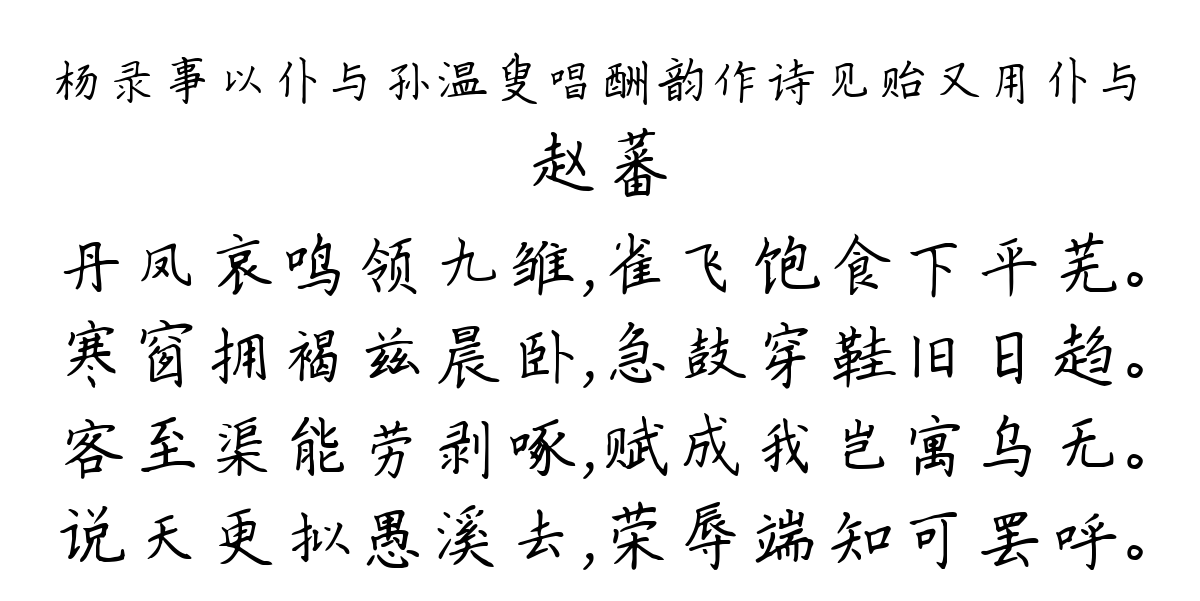 杨录事以仆与孙温叟唱酬韵作诗见贻又用仆与
赵蕃
丹凤哀鸣领九雏,雀飞饱食下平芜。
寒窗拥褐兹晨卧,急鼓穿鞋旧日趋。
客至渠能劳剥啄,赋成我岂寓乌无。
说天更拟愚溪去,荣辱端知可罢呼。